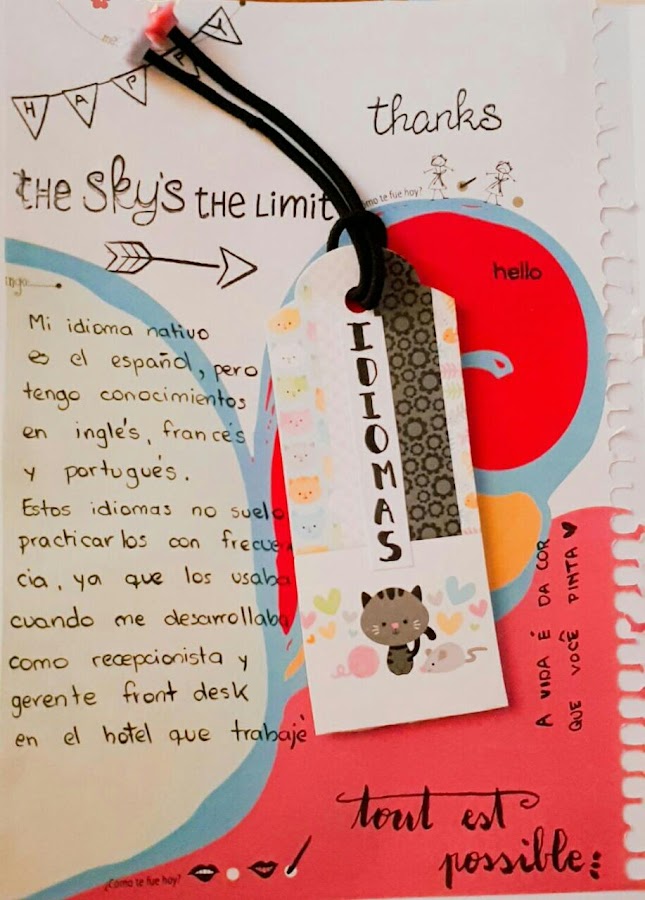 HAPPY
thanks
¿Cómo te fue hoy?
tHE SKY'S tHE LimiT
hello
IDIOMAS
Mi idioma nativo
es el español, pero
tengo conocimientos
en inglés, francés
y portugués.
Estos idiomas no suelo
practicarlos con frecuen
cia, ya que los usaba
cuando me desarrollaba
como recepcionista y
gerente front desk
en el hotel que trabajé
A VIDA É DA COR
QUE VOCÊ PINTA
tout est
possible...
¿Cómo te fue hoy?